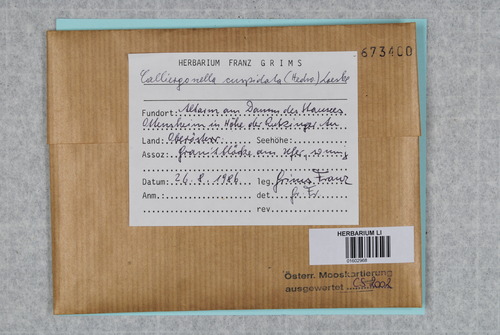 HERBARIUM FRANZ GRIMS
673400
Calliergonella cuspidata (Hedw.) Loeske
Fundort: Altarm am Damm des
Ottensheim in Höhe der Au
Land: Oberösterr. Seehöhe:
Assoz: Granitblöcke am Ufer, sonnig
Datum: 26.8.1986 leg. Grims Franz
Anm. det. Gr. Fr.
rev.
HERBARIUM LI
Österr. Mooskartierung
ausgewertet